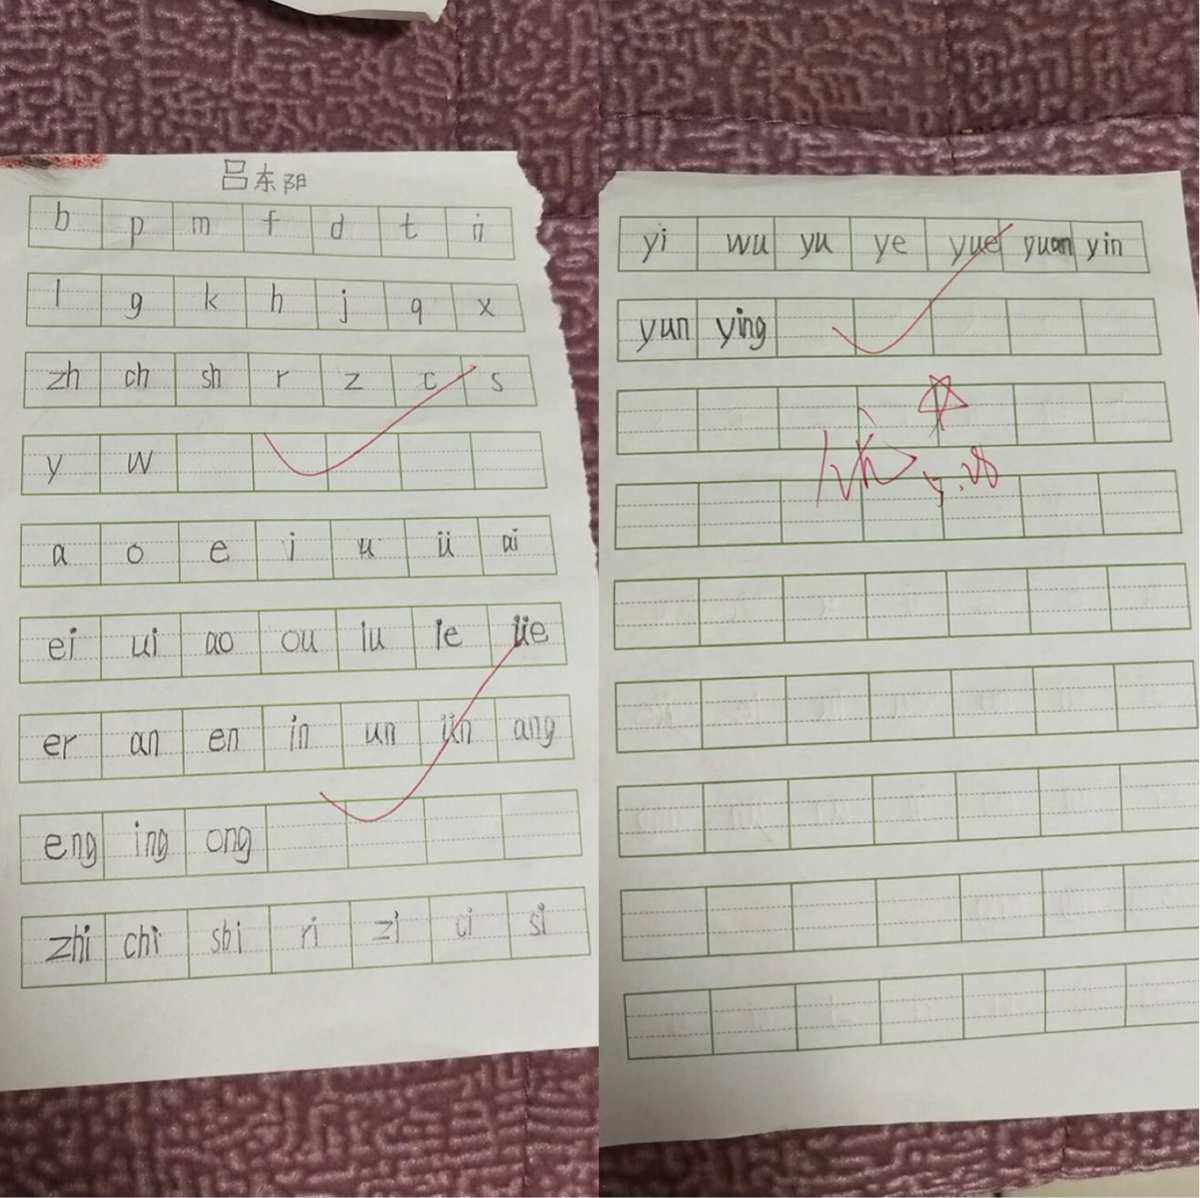 吕东阳
b p m f d t n
l g k h j q x
zh ch sh r z c s
y w
a o e i u ü ai
ei ui ao ou iu ie üe
er an en in un ün ang
eng ing ong
zhi chi shi ri zi ci si
yi wu yu ye yue yuan yin
yun ying